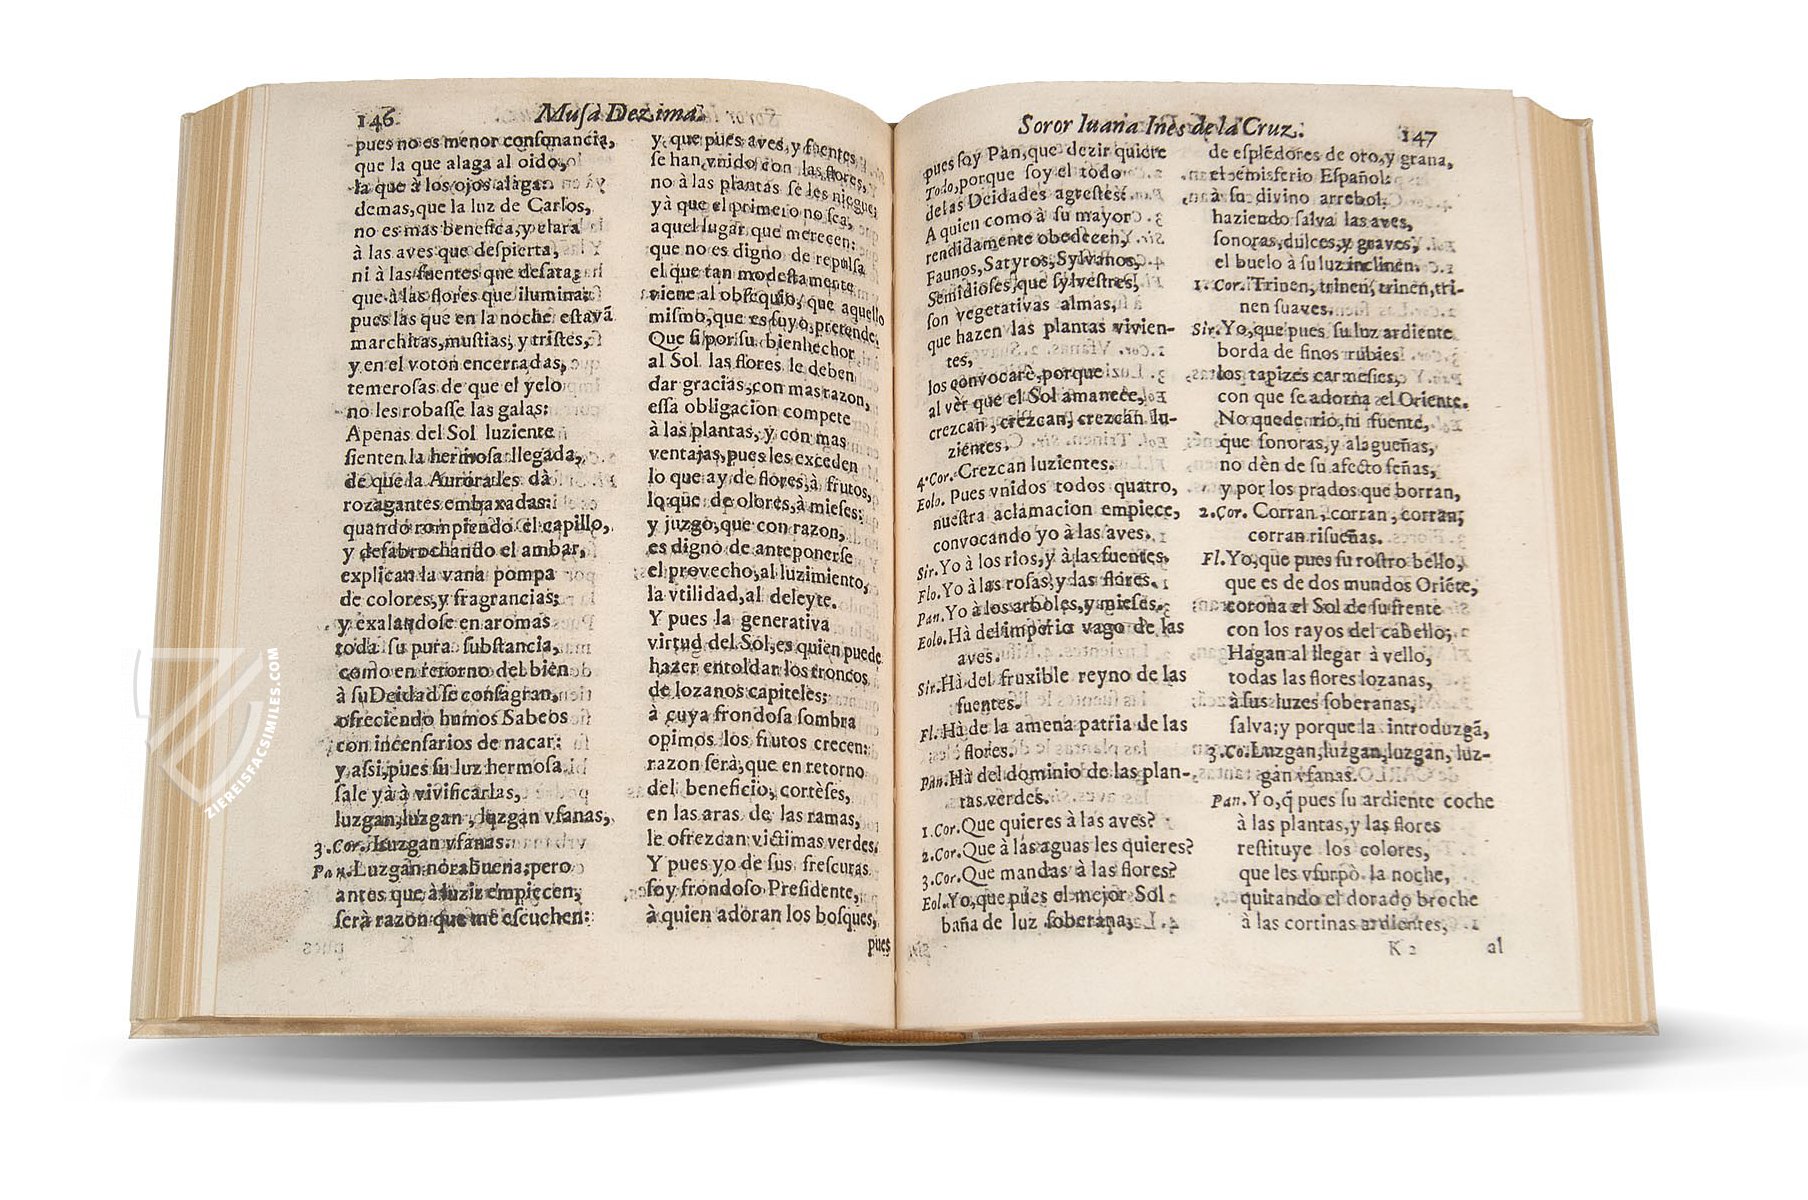 146 Musa Dezima.
pues no es menor consonancia,
que la que alaga al oido,
la que à los ojos alaga:
demas, que la luz de Carlos,
no es mas benefica, y clara
à las aves que despierta,
ni à las fuentes que desata,
que à las flores que ilumina;
pues las que en la noche estavã
marchitas, mustias, y tristes,
y en el voton encerradas,
temerosas de que el yelo
no les robasse las galas:
Apenas del Sol luziente
sienten la hermosa llegada,
de que la Aurora les dà
rozagantes embaxadas:
quando rompiendo el capillo,
y desabrochando el ambar,
explican la vana pompa
de colores, y fragrancias;
y exalandose en aromas
toda su pura substancia,
como en retorno del bien
à su Deidad se consagran,
ofreciendo humos Sabeos
con incensarios de nacar:
y assi, pues su luz hermosa
sale yà à vivificarlas,
luzgan, luzgan, luzgan vfanas,
3. Cor. Luzgan vfanas.
Pan. Luzgan norabuena; pero
antes que à luzir empiecen,
serà razon que me escuchen:
y que pues aves, y fuentes
se han vnido con las flores,
no à las plantas se les niegue;
yà que el primero no sea,
aquel lugar que merecen:
que no es digno de repulsa
el que tan modestamente
viene al obsequio, que aquello
mismo, que es suyo, pretende.
Que si por su bienhechor
al Sol las flores le deben
dar gracias, con mas razon,
essa obligacion compete
à las plantas, y con mas
ventajas, pues les exceden
lo que ay de flores, à frutos,
lo que de olores, à mieses;
y juzgo, que con razon,
es digno de anteponerse
el provecho, al luzimiento,
la vtilidad, al deleyte.
Y pues la generativa
virtud del Sol, es quien puede
hazer entoldar los troncos
de lozanos capiteles;
à cuya frondosa sombra
opimos los frutos crecen:
razon serà, que en retorno
del beneficio, cortèses,
en las aras de las ramas,
le ofrezcan victimas verdes.
Y pues yo de sus frescuras
soy frondoso Presidente,
à quien adoran los bosques,
pues
Soror Iuana Inès de la Cruz. 147
pues soy Pan, que dezir quiere
Todo, porque soy el todo
de las Deidades agrestes:
A quien como à su mayor
rendidamente obedecen,
Faunos, Satyros, Sylvanos,
Semidioses, que sylvestres,
son vegetativas almas,
que hazen las plantas vivien-
tes,
los convocarè, porque
al vèr que el Sol amanece,
crezcan, crezcan, crezcan lu-
zientes.
4. Cor. Crezcan luzientes.
Eolo. Pues vnidos todos quatro,
nuestra aclamacion empiece,
convocando yo à las aves.
Sir. Yo à los rios, y à las fuentes.
Flo. Yo à las rosas, y las flores.
Pan. Yo à los arboles, y mieses.
Eolo. Hà del imperio vago de las
aves.
Sir. Hà del fruxible reyno de las
fuentes.
Fl. Hà de la amena patria de las
flores.
Pan. Hà del dominio de las plan-
tas verdes.
1. Cor. Que quieres à las aves?
2. Cor. Que à las aguas les quieres?
3. Cor. Que mandas à las flores?
Eol. Yo, que pues el mejor Sol
baña de luz soberana,
de esplẽdores de oro, y grana,
el emisferio Español:
à su divino arrebol,
haziendo salva las aves,
sonoras, dulces, y graves,
el buelo à su luz inclinen.
1. Cor. Trinen, trinen, trinen, tri-
nen suaves.
Sir. Yo, que pues su luz ardiente
borda de finos rubies
los tapizes carmesies,
con que se adorna el Oriente.
No quede rio, ni fuente,
que sonoras, y alagueñas,
no dèn de su afecto señas,
y por los prados que borran,
2. Cor. Corran, corran, corran,
corran risueñas.
Fl. Yo, que pues su rostro bello,
que es de dos mundos Oriẽte,
corona el Sol de su frente
con los rayos del cabello;
Hagan al llegar à vello,
todas las flores lozanas,
à sus luzes soberanas,
salva; y porque la introduzgã,
3. Co. Luzgan, luzgan, luzgan, luz-
gan vfanas.
Pan. Yo, q̃ pues su ardiente coche
à las plantas, y las flores
restituye los colores,
que les vsurpò la noche,
quitando el dorado broche
à las cortinas ardientes,
K 2 al
ZIEREISFACSIMILES.COM